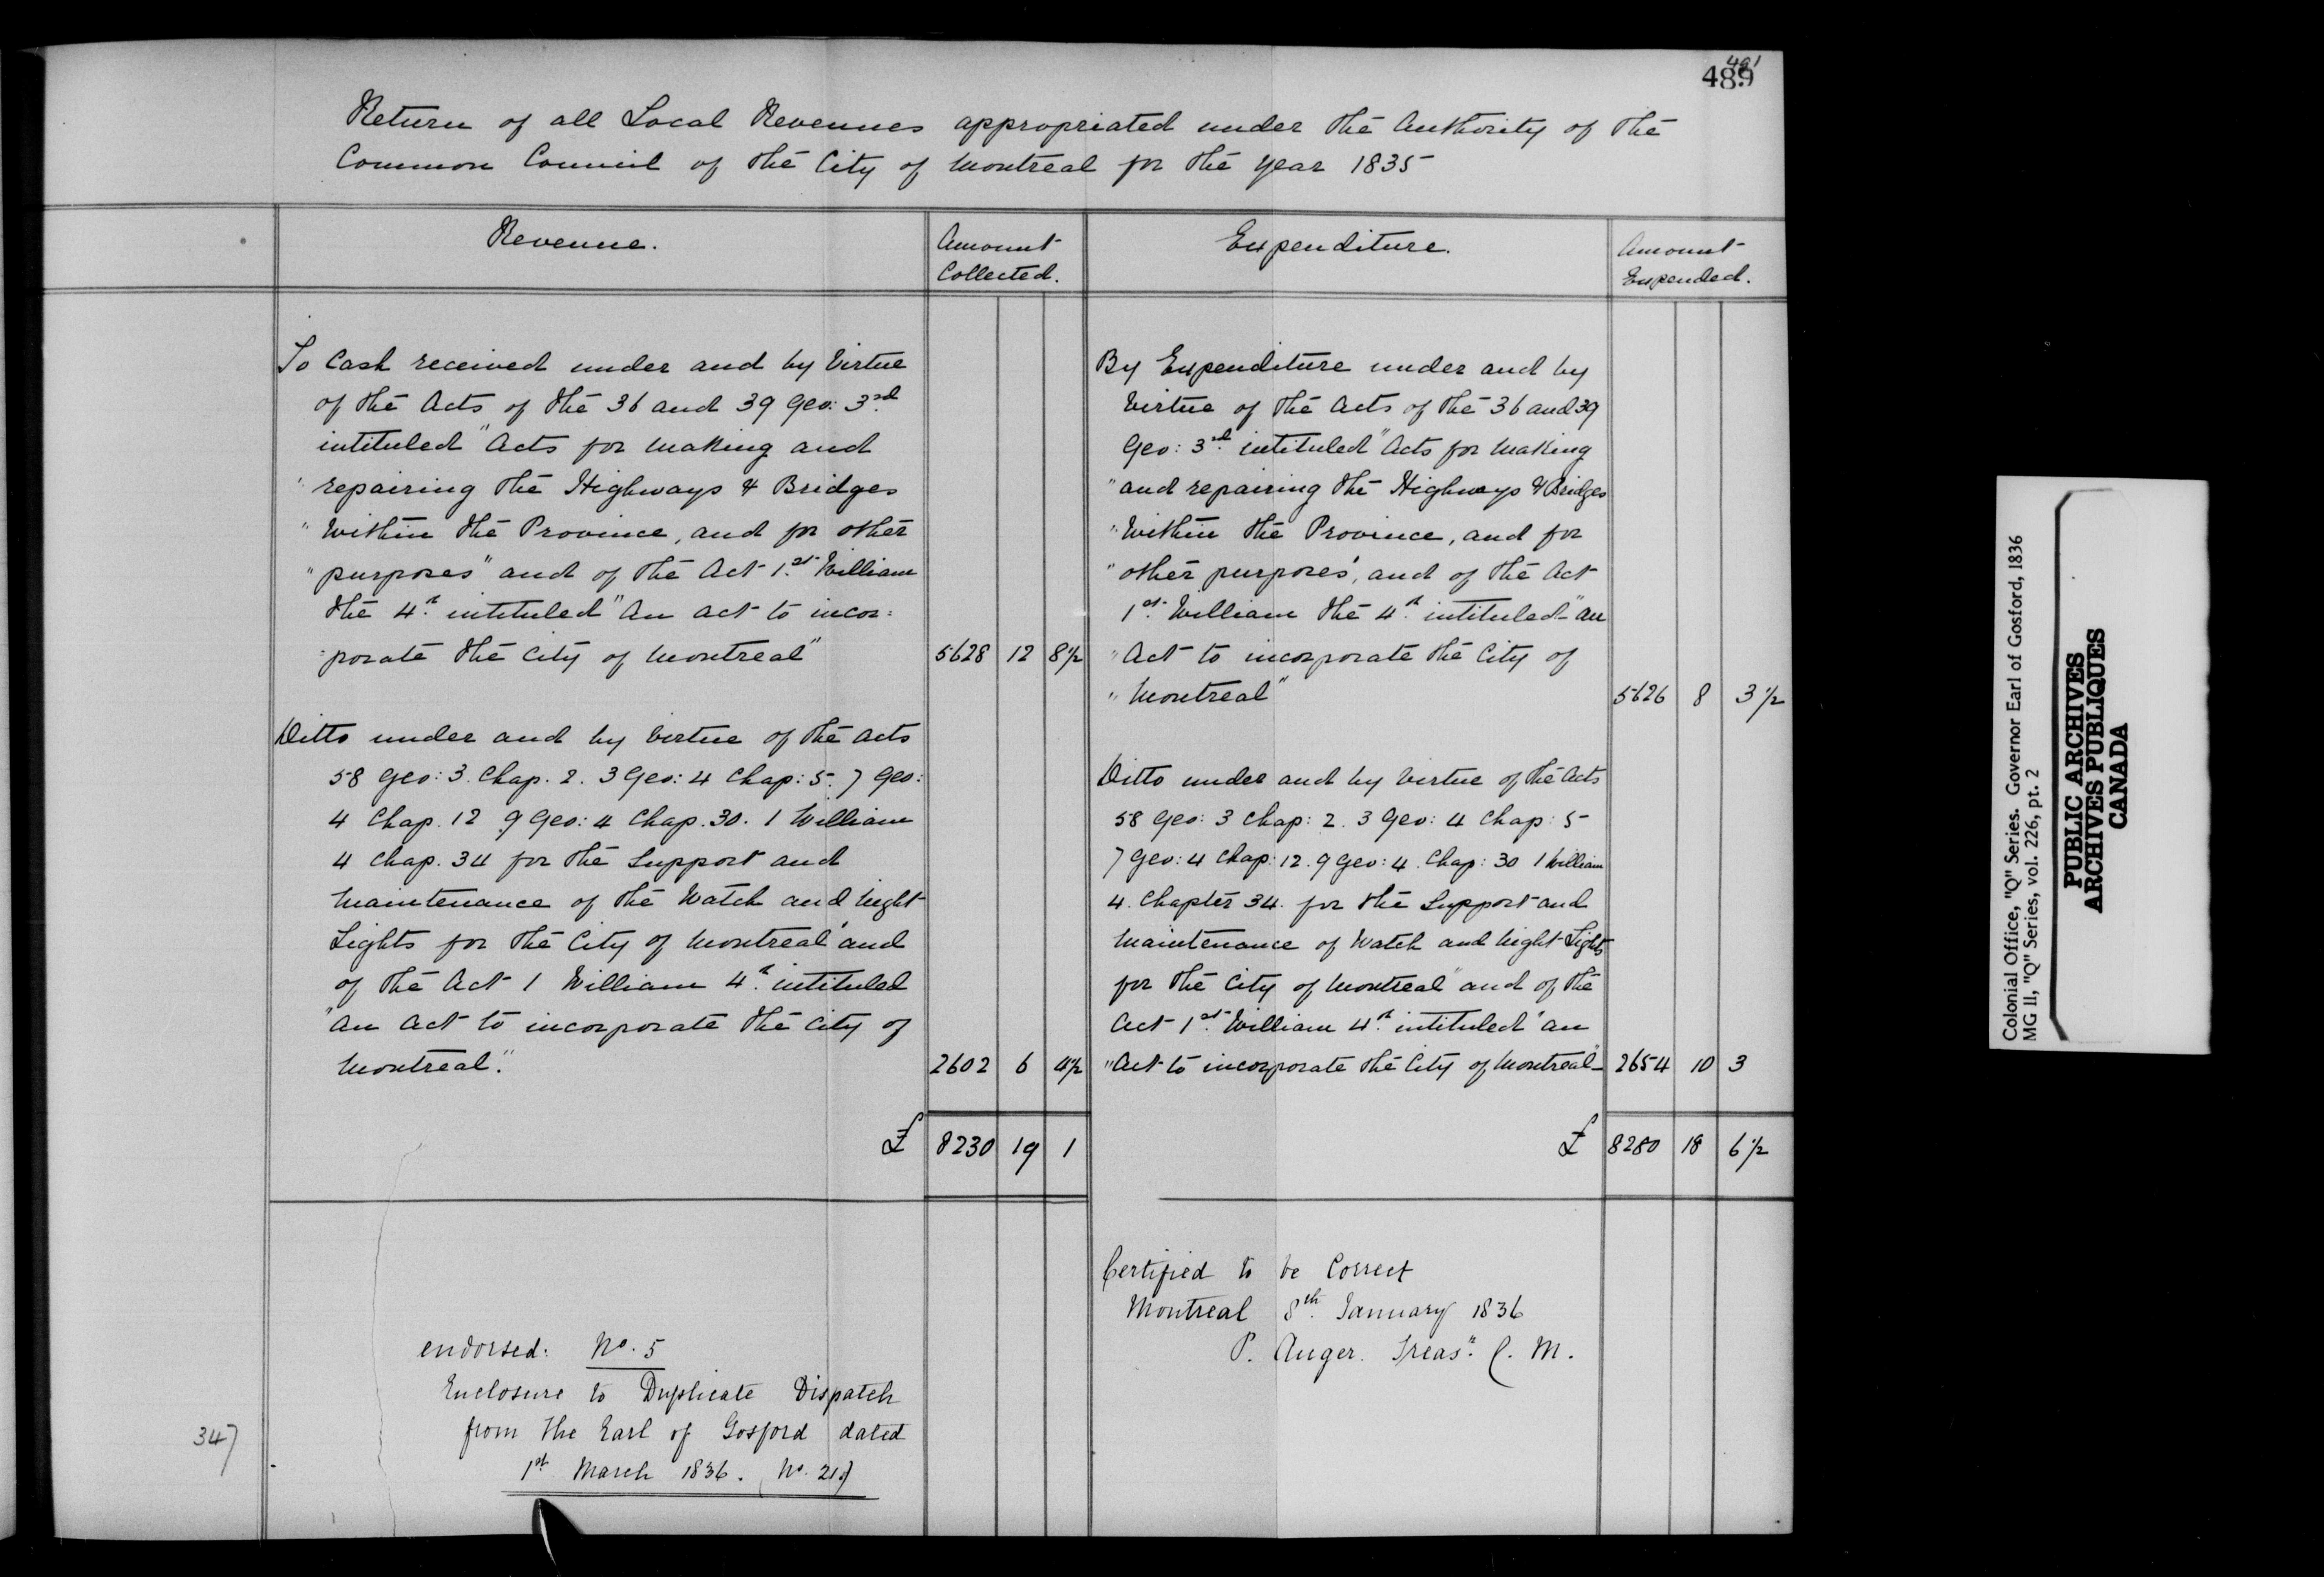 489
491
Return of all Local Revenues appropriated under the Authority of the
Common Council of the City of Montreal for the year 1835
Revenue.
Amount
Collected.
To Cash received under and by Virtue
of the Acts of the 36 and 39 Geo: 3rd
intituled "Acts for making and
" repairing the Highways & Bridges
" Within the Province, and for other
" purposes" and of the Act 1.st William
the 4.th intituled "An act to incor=
porate the City of Montreal" 5628 12 8½
Ditto under and by virtue of the Acts
58 Geo: 3. Chap. 2. 3 Geo: 4 Chap: 5. 7 Geo:
4 Chap. 12 9 Geo: 4 Chap. 30. 1 William
4 Chap. 34 for the Support and
Maintenance of the Watch and Night
Lights for the City of Montreal" and
of the Act 1 William 4.th intituled
"An Act to incorporate the City of
Montreal". 2602 6 4½
£ 8230 19 1
Expenditure.
Amount
Expended.
By Expenditure under and by
Virtue of the Acts of the 36 and 39
Geo: 3rd intituled "Acts for Making
" and repairing the Highways & Bridges
" Within the Province, and for
" other purposes', and of the Act
1st William the 4.th intituled "An
" Act to incorporate the City of
" Montreal" 5626 8 3½
Ditto under and by Virtue of the Acts
58 Geo: 3 Chap: 2. 3 Geo: 4 Chap: 5
7 Geo: 4 Chap: 12. 9 Geo: 4. Chap: 30 1 William
4. Chapter 34. for the Support and
Maintenance of Watch and Night Lights
for the City of Montreal" and of the
Act 1.st William 4.th intituled "an
" Act to incorporate the City of Montreal" 2654 10 3
£ 8280 18 6½
Certified to be Correct
Montreal 8th January 1836
P. Auger. Treasr. C. M.
endorsed: No. 5
Enclosure to Duplicate Dispatch
from the Earl of Gosford dated
1st March 1836.
347
Colonial Office, "Q" Series. Governor Earl of Gosford, 1836
MG II, "Q" Series, vol. 226, pt. 2
PUBLIC ARCHIVES
ARCHIVES PUBLIQUES
CANADA